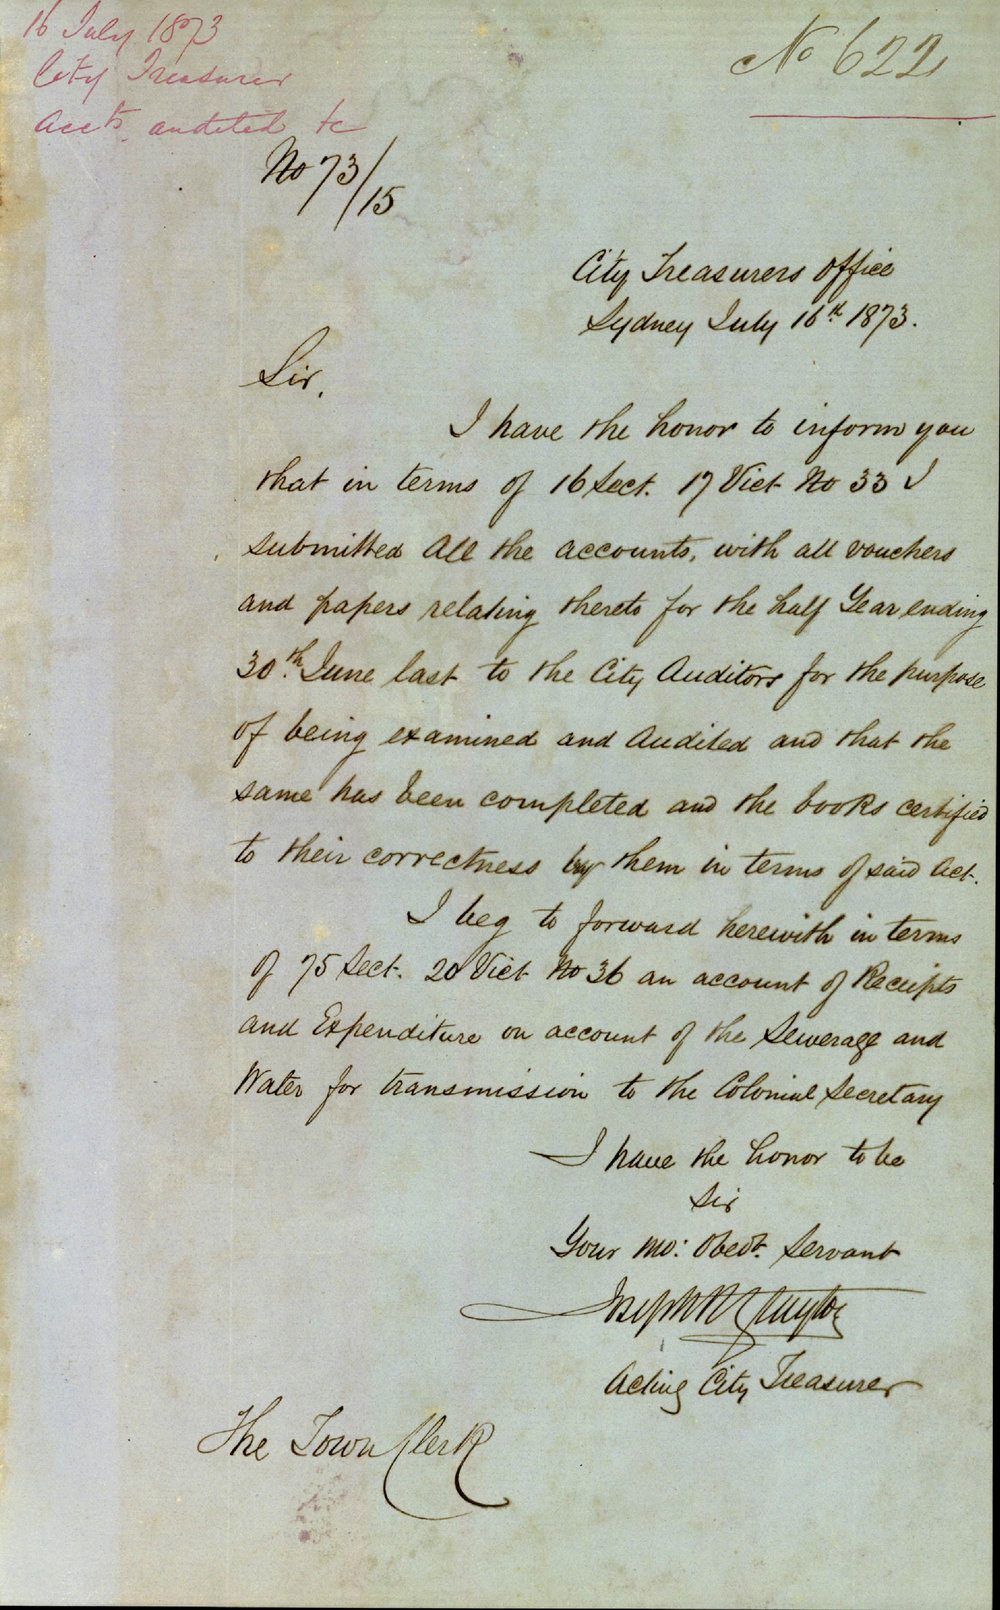 16 July 1873
City Treasurer
Accts. audited &c
No 622
No 73/15
City Treasurers Office
Sydney July 16th 1873.
Sir,
I have the honor to inform you
that in terms of 16 Sect. 17 Vict No 33 I
submitted All the accounts, with all vouchers
and papers relating thereto for the half Year ending
30th June last to the City Auditors for the purpose
of being examined and Audited and that the
same has been completed and the books certified
to their correctness by them in terms of said Act.
I beg to forward herewith in terms
of 75 Sect. 20 Vict No 36 an account of Receipts
and Expenditure on account of the Sewerage and
Water for transmission to the Colonial Secretary
I have the honor to be
Sir
Your Mo: Obedt. Servant
Joseph
Acting City Treasurer
The Town Clerk